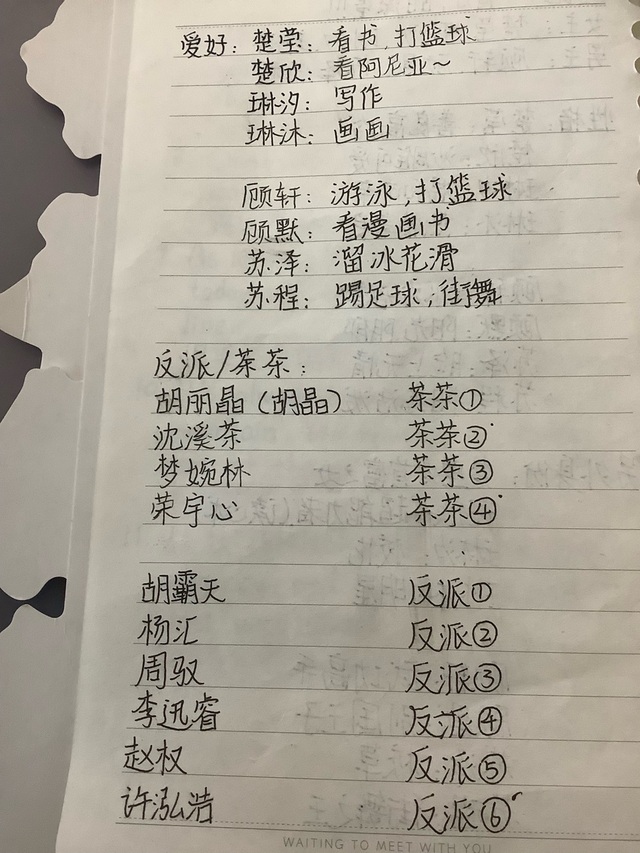 爱好：楚莹：看书，打篮球
楚欣：看阿尼亚～
琳汐：写作
琳沐：画画
顾轩：游泳，打篮球
顾默：看漫画书
苏泽：溜冰花滑
苏程：踢足球，街舞
反派/茶茶：
胡丽晶（胡晶） 茶茶①
沈溪茶 茶茶②
梦婉林 茶茶③
荣宇心 茶茶④
胡霸天 反派①
杨汇 反派②
周驭 反派③
李迅睿 反派④
赵权 反派⑤
许泓浩 反派⑥
WAITING TO MEET WITH YOU